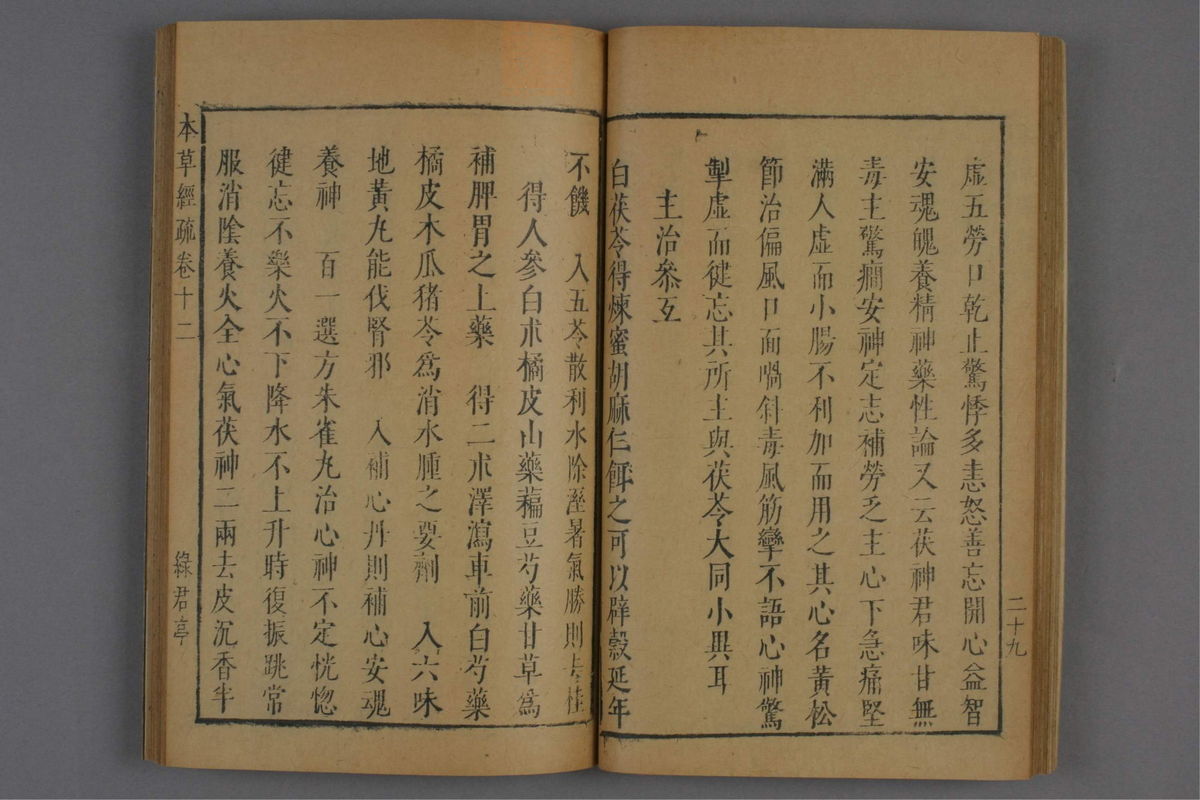 虛五勞口乾止驚悸多恚怒善忘開心益智
安魂魄養精神藥性論又云茯神君味甘無
毒主驚癇安神定志補勞乏主心下急痛堅
滿人虛而小腸不利加而用之其心名黃松
節治偏風口面喎斜毒風筋攣不語心神驚
掣虛而健忘其所主與茯苓大同小異耳
主治叅互
白茯苓得煉蜜胡麻仁餌之可以辟穀延年
二十九
不饑 入五苓散利水除溼暑氣勝則去桂
得人參白朮橘皮山藥藊豆芍藥甘草爲
補脾胃之上藥 得二朮澤瀉車前白芍藥
橘皮木瓜猪苓爲消水腫之要劑 入六味
地黃丸能伐腎邪 入補心丹則補心安魂
養神 百一選方朱雀丸治心神不定恍惚
健忘不樂火不下降水不上升時復振跳常
服消陰養火全心氣茯神二兩去皮沉香半
本草經疏卷十二
綠君亭